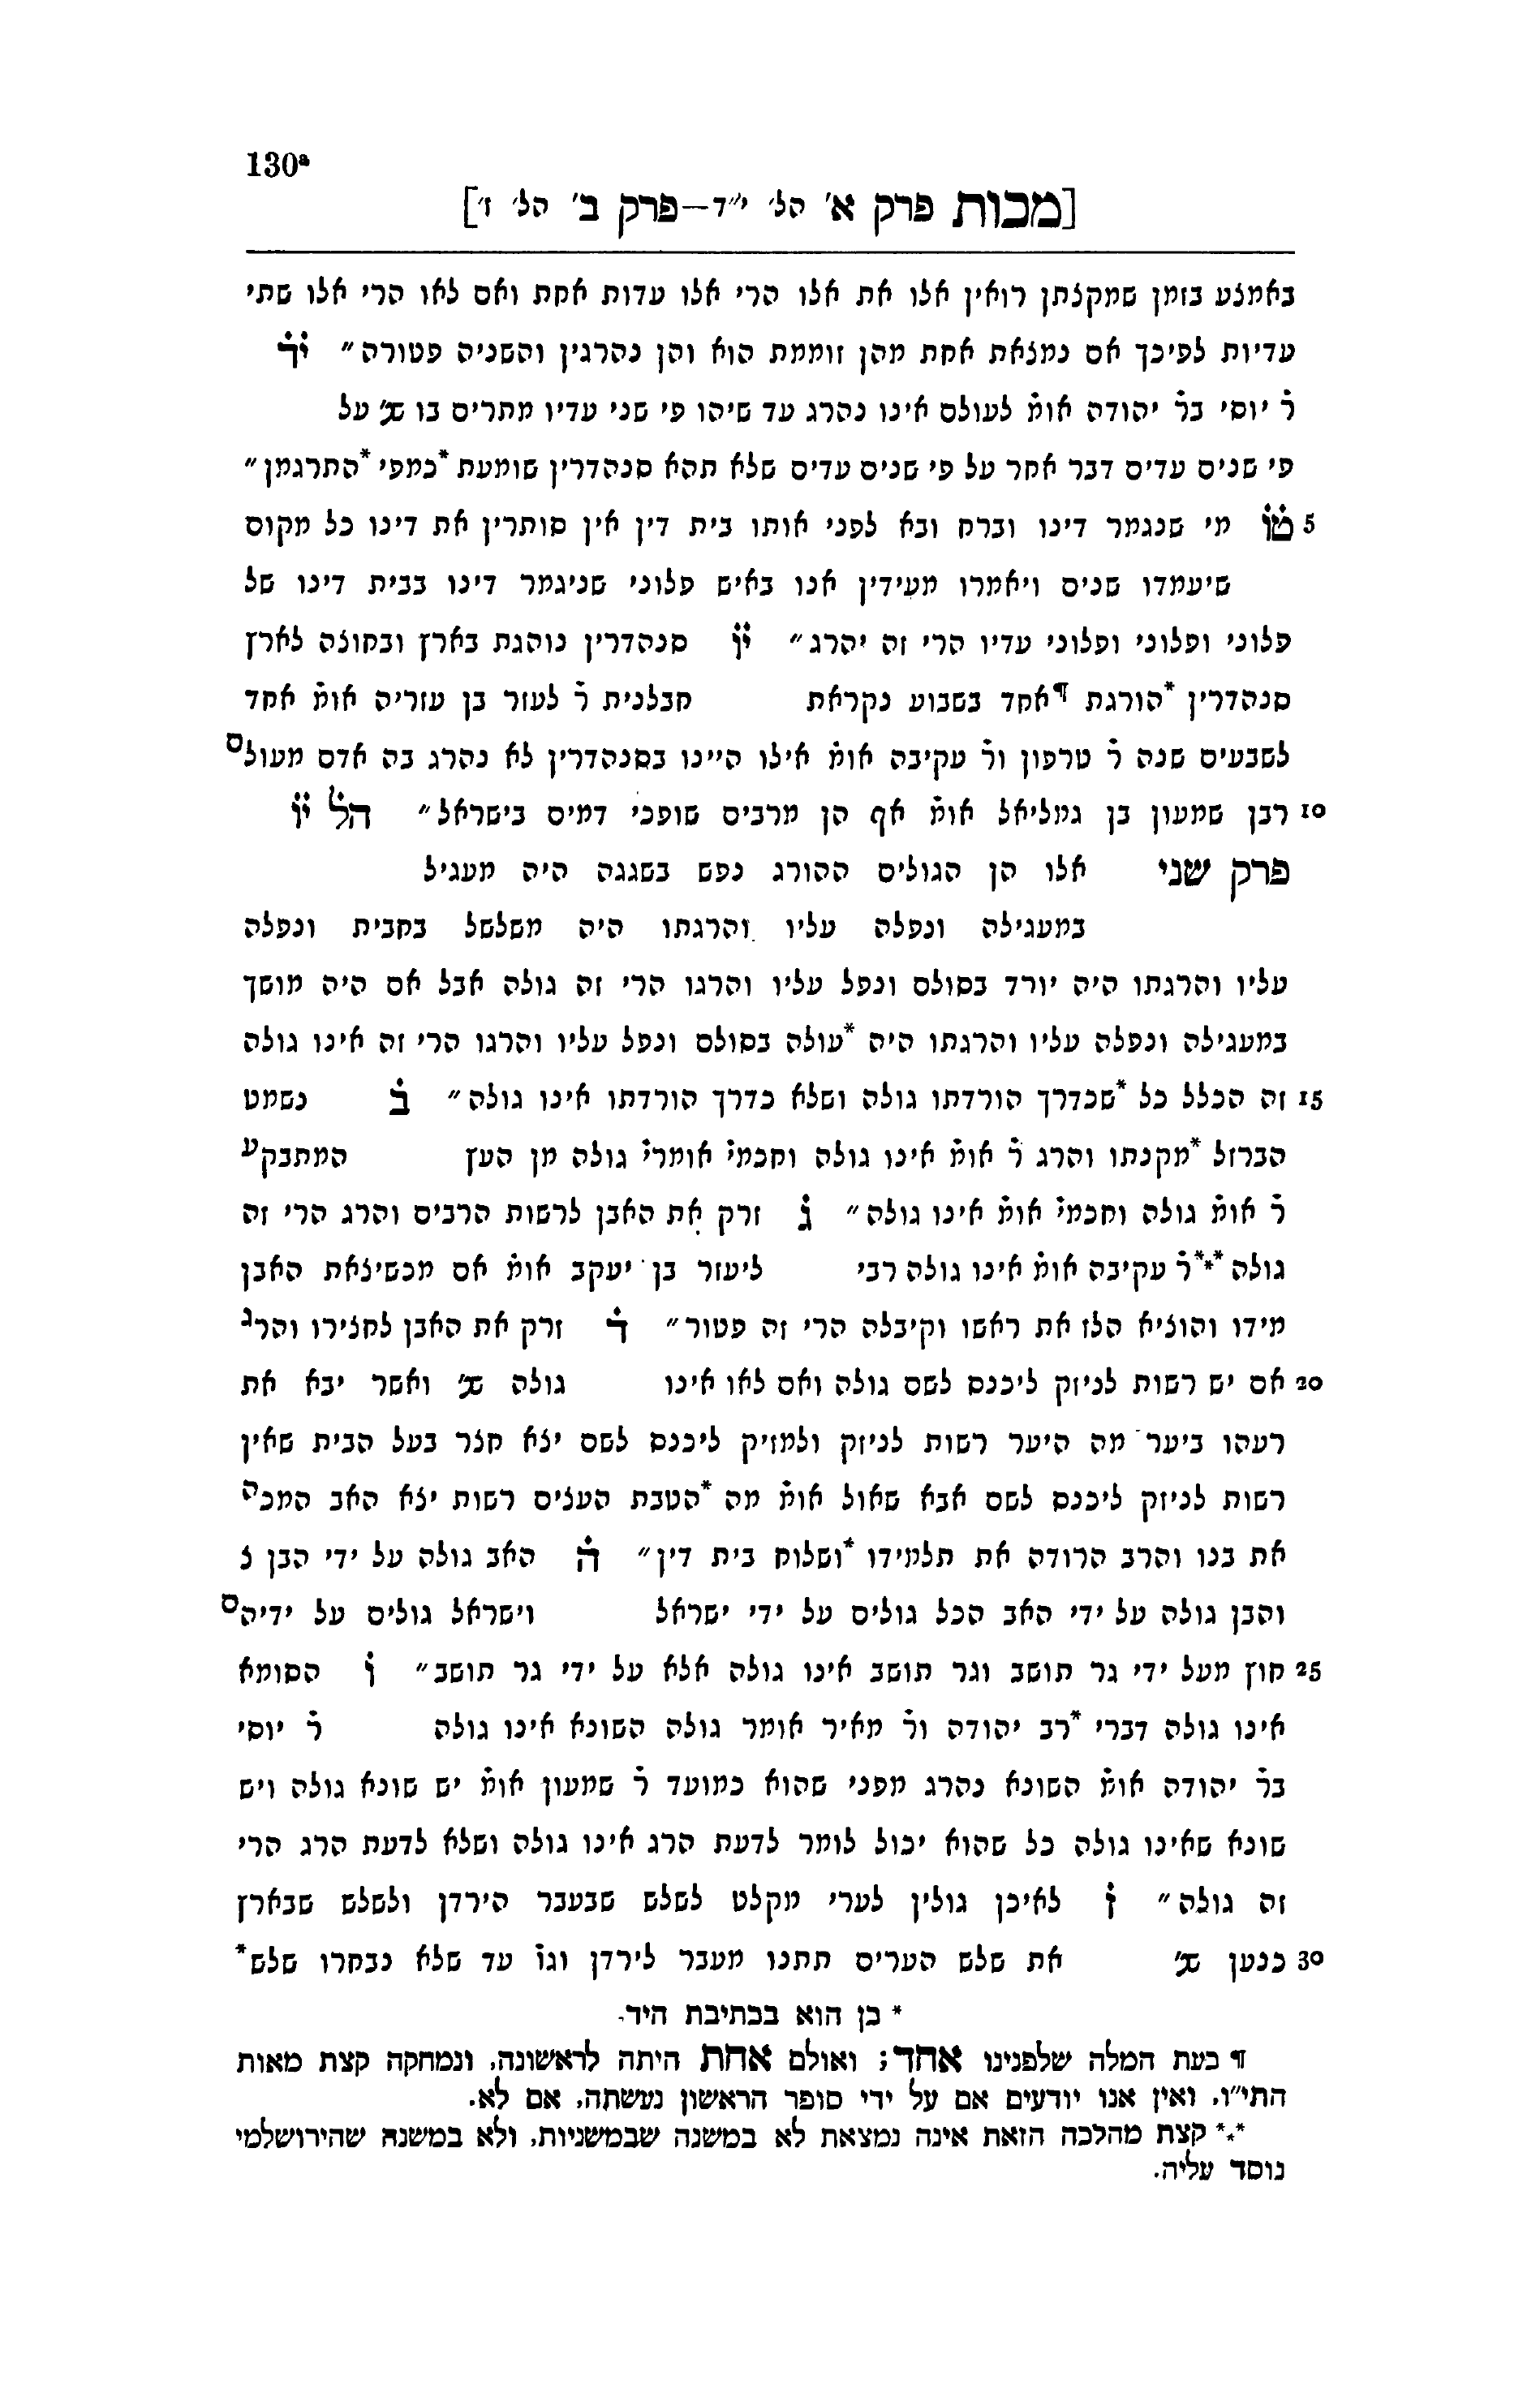 130ª
[מכות פרק א׳ הל׳ י״ד—פרק ב׳ הל׳ ז׳]
באמצע בזמן שמקצתן רואין אלו את אלו הרי אלו עדות אחת ואם לאו הרי אלו שתי
עדיות לפיכך אם נמצאת אחת מהן זוממת הוא והן נהרגין והשניה פטורה״ יד̇
ר̇ יוסי בר̇ יהודה אומ̇ לעולם אינו נהרג עד שיהו פי שני עדיו מתרים בו שנ׳ על
פי שנים עדים דבר אחר על פי שנים עדים שלא תהא סנהדרין שומעת *כמפי *התרגמן״
5 טו̇ מי שנגמר דינו וברח ובא לפני אותו בית דין אין סותרין את דינו כל מקום
שיעמדו שנים ויאמרו מעידין אנו באיש פלוני שניגמר דינו בבית דינו של
פלוני ופלוני ופלוני עדיו הרי זה יהרג״ יו̇ סנהדרין נוהגת בארץ ובחוצה לארץ
סנהדרין *הורגת ¶אחד בשבוע נקראת חבלנית ר̇ לעזר בן עזריה אומ̇ אחד
לשבעים שנה ר̇ טרפון ור̇ עקיבה אומ̇ אילו היינו בסנהדרין לא נהרג בה אדם מעולם
10 רבן שמעון בן גמליאל אומ̇ אף הן מרבים שופכי דמים בישראל״ הל̇ יו̇
פרק שני אלו הן הגולים ההורג נפש בשגגה היה מעגיל
במעגילה ונפלה עליו והרגתו היה משלשל בחבית ונפלה
עליו והרגתו היה יורד בסולם ונפל עליו והרגו הרי זה גולה אבל אם היה מושך
במעגילה ונפלה עליו והרגתו היה *עולה בסולם ונפל עליו והרגו הרי זה אינו גולה
15 זה הכלל כל *שכדרך הורדתו גולה ושלא כדרך הורדתו אינו גולה״ ב̇ נשמט
הברזל *מקנתו והרג ר̇ אומ̇ אינו גולה וחכמי̇ אומרי̇ גולה מן העץ המתבקע
ר̇ אומ̇ גולה וחכמי̇ אומ̇ אינו גולה״ ג̇ זרק את האבן לרשות הרבים והרג הרי זה
גולה *⁎*ר̇ עקיבה אומ̇ אינו גולה רבי ליעזר בן יעקב אומ̇ אם מכשיצאת האבן
מידו והוציא הלז את ראשו וקיבלה הרי זה פטור״ ד̇ זרק את האבן לחצירו והרג
20 אם יש רשות לניזק ליכנס לשם גולה ואם לאו אינו גולה שנ׳ ואשר יבא את
רעהו ביער מה היער רשות לניזק ולמזיק ליכנס לשם יצא חצר בעל הבית שאין
רשות לניזק ליכנס לשם אבא שאול אומ̇ מה *הטבת העצים רשות יצא האב המכה
את בנו והרב הרודה את תלמידו *ושלוח בית דין״ ה̇ האב גולה על ידי הבן צ
והבן גולה על ידי האב הכל גולים על ידי ישראל וישראל גולים על ידיהם
25 חוץ מעל ידי גר תושב וגר תושב אינו גולה אלא על ידי גר תושב״ ו̇ הסומא
אינו גולה דברי *רב יהודה ור̇ מאיר אומר גולה השונא אינו גולה ר̇ יוסי
בר̇ יהודה אומ̇ השונא נהרג מפני שהוא כמועד ר̇ שמעון אומ̇ יש שונא גולה ויש
שונא שאינו גולה כל שהוא יכול לומר לדעת הרג אינו גולה ושלא לדעת הרג הרי
זה גולה״ ז̇ לאיכן גולין לערי מקלט לשלש שבעבר הירדן ולשלש שבארץ
30 כנען שנ׳ את שלש הערים תתנו מעבר לירדן וגו̇ עד שלא נבחרו שלש*
* כן הוא בכתיבת היד.
¶ כעת המלה שלפנינו אחד; ואולם אחת היתה לראשונה, ונמחקה קצת מאות
התי״ו, ואין אנו יודעים אם על ידי סופר הראשון נעשתה, אם לא.
*⁎* קצת מהלכה הזאת אינה נמצאת לא במשנה שבמשניות, ולא במשנה שהירושלמי
נוסד עליה.